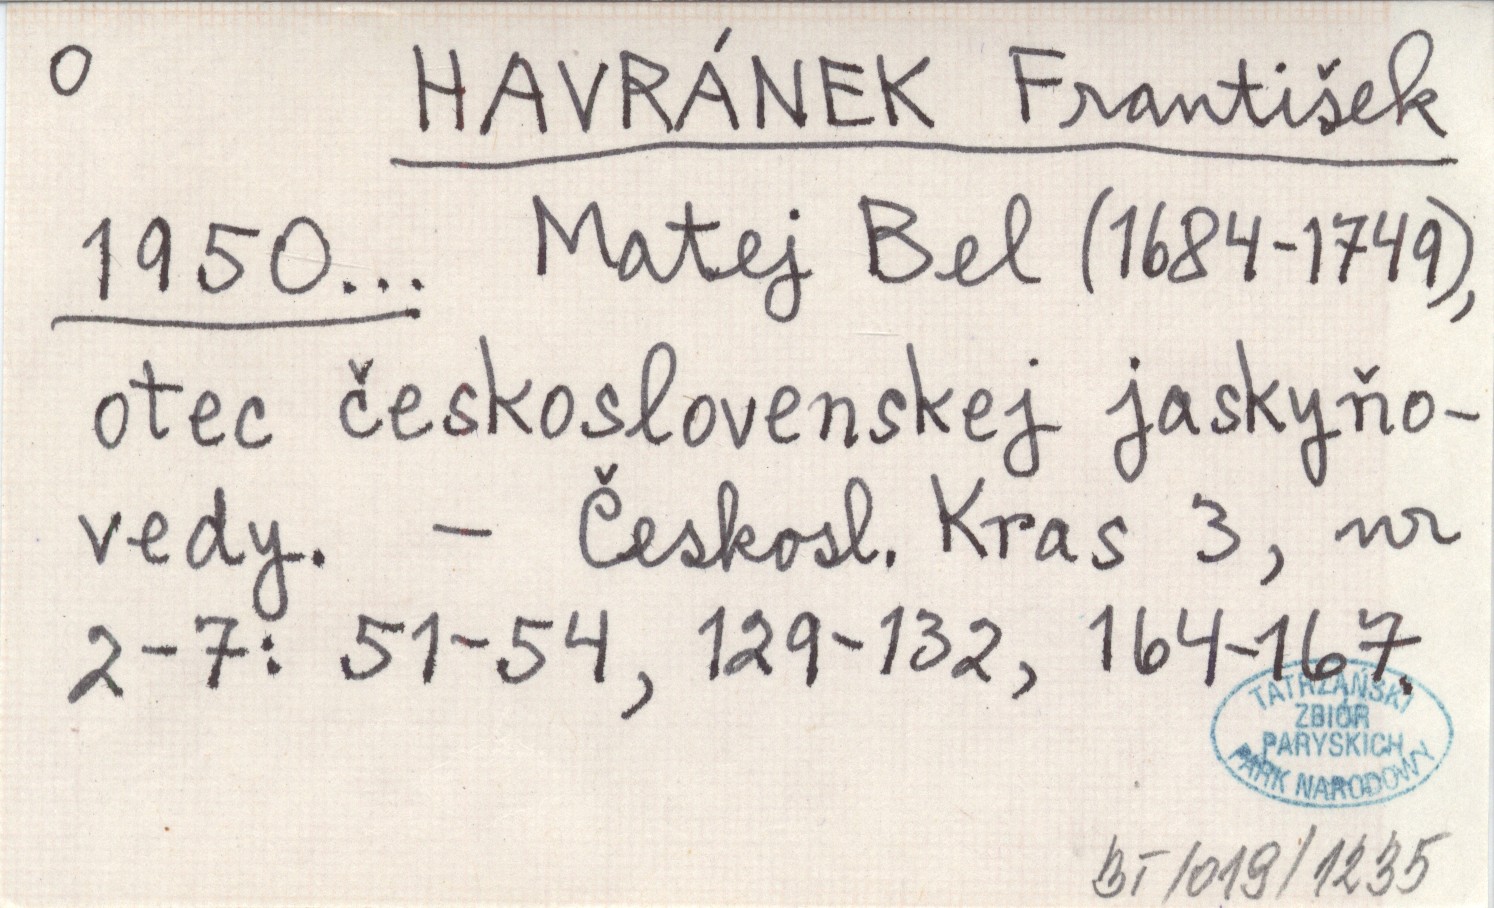 O HAVRÁNEK František
1950... Matej Bel (1684-1749),
otec československej jaskyňo-
vedy. - Českosl. Kras 3, nr
2-7: 51-54, 129-132, 164-167.
TATRZAŃSKI
ZBIÓR
PARYSKICH
PARK NARODOWY
BT/019/1235